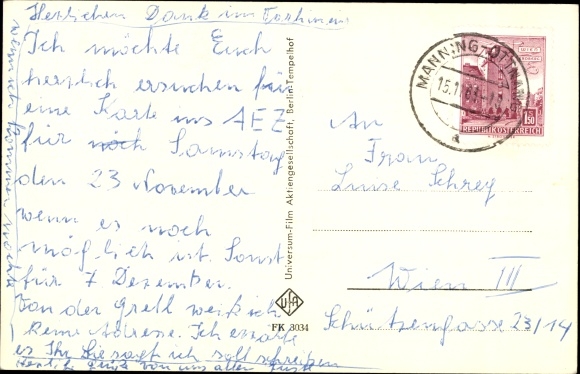 Herzlichen Dank im Vorhinein
Ich möchte Euch
herzlich ersuchen für
eine Karte ins AEZ
für noch Samstag
den 23 November
wenn es noch
möglich ist. Sonst
für 7 Dezember.
Von der Gretl weiß ich
keine Adresse. Ich
es Ihr. Sie sagt ich soll schreiben
von uns allen
wenn ich kommen
Universum-Film Aktiengesellschaft, Berlin-Tempelhof
UFA
FK 3034
MANNING
15.1
a
WIEN
1.50
REPUBLIK ÖSTERREICH
An
Frau
Luise Schrey
Wien III
Schützengasse 23/14